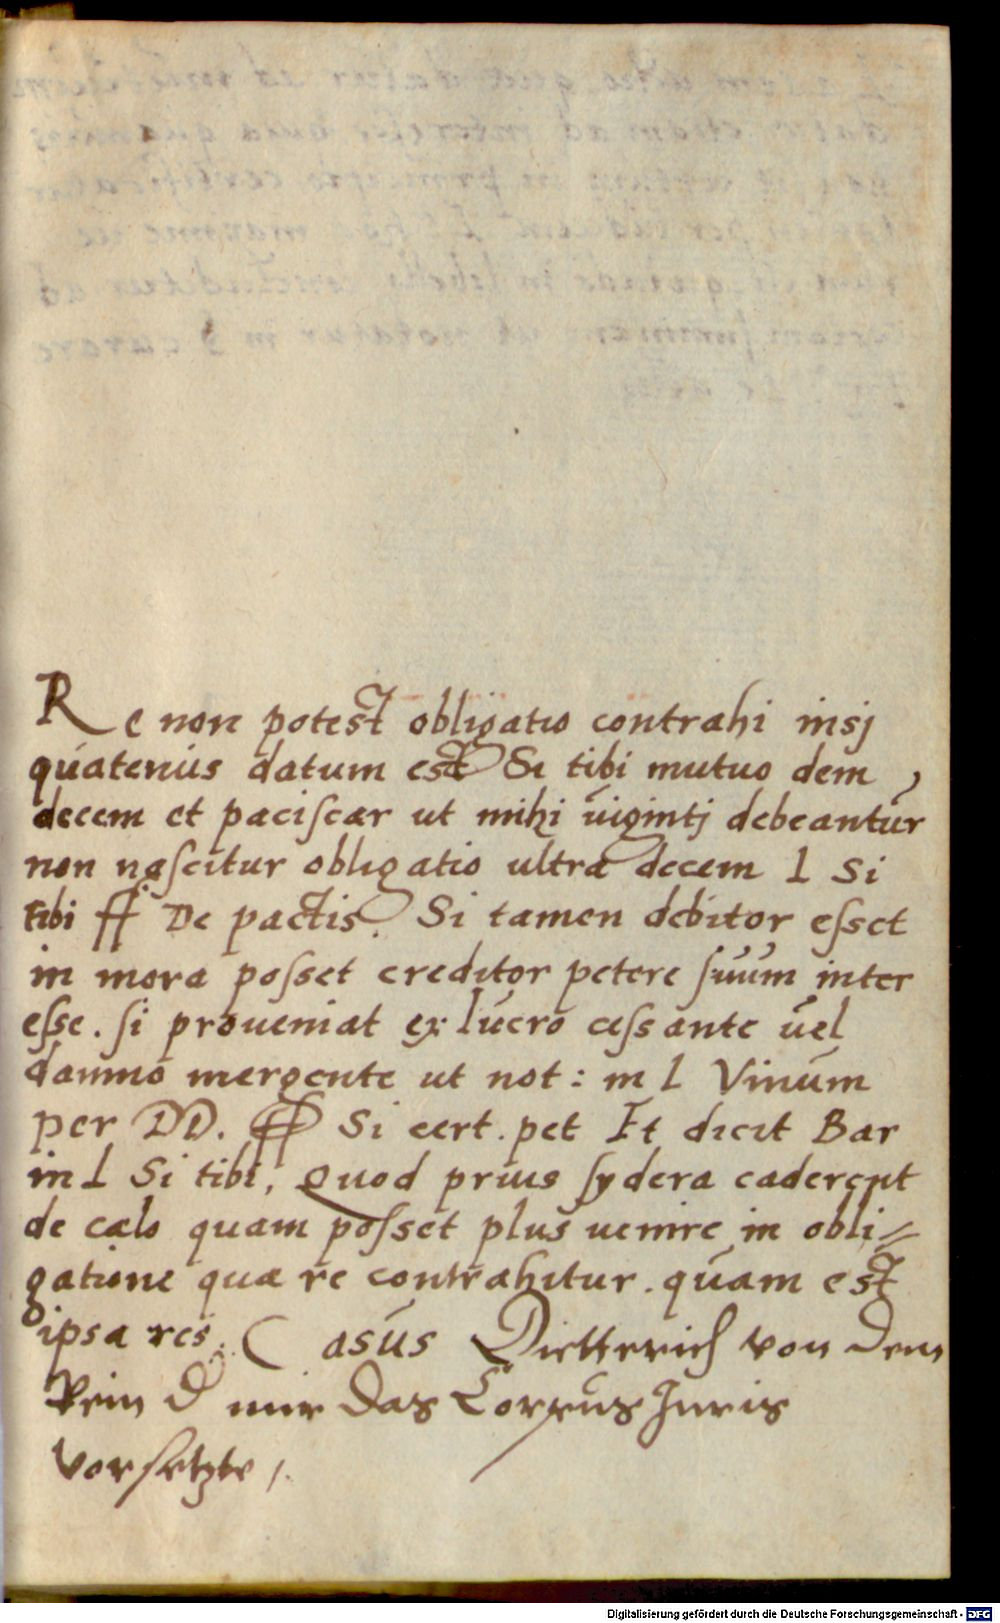 Re non potest obligatio contrahi insj
quatenus datum est Si tibi mutuo dem
decem et paciscar ut mihi uigintj debeantur
non nascitur obligatio ultra decem l Si
tibi ff De pactis. Si tamen debitor esset
in mora posset creditor petere suum inter
esse. si proueniat ex lucro cessante uel
damno mergente ut not: in l Vinum
per DD. ff Si cert. pet Et dicit Bar
in L Si tibi, Quod prius sydera caderent
de cælo quam posset plus uenire in obli=
gatione quæ re contrahitur. quam est
ipsa res. Casus Dietterich von dem
mir das Corpus Juris
vorsetzte,
Digitalisierung gefördert durch die Deutsche Forschungsgemeinschaft - DFG